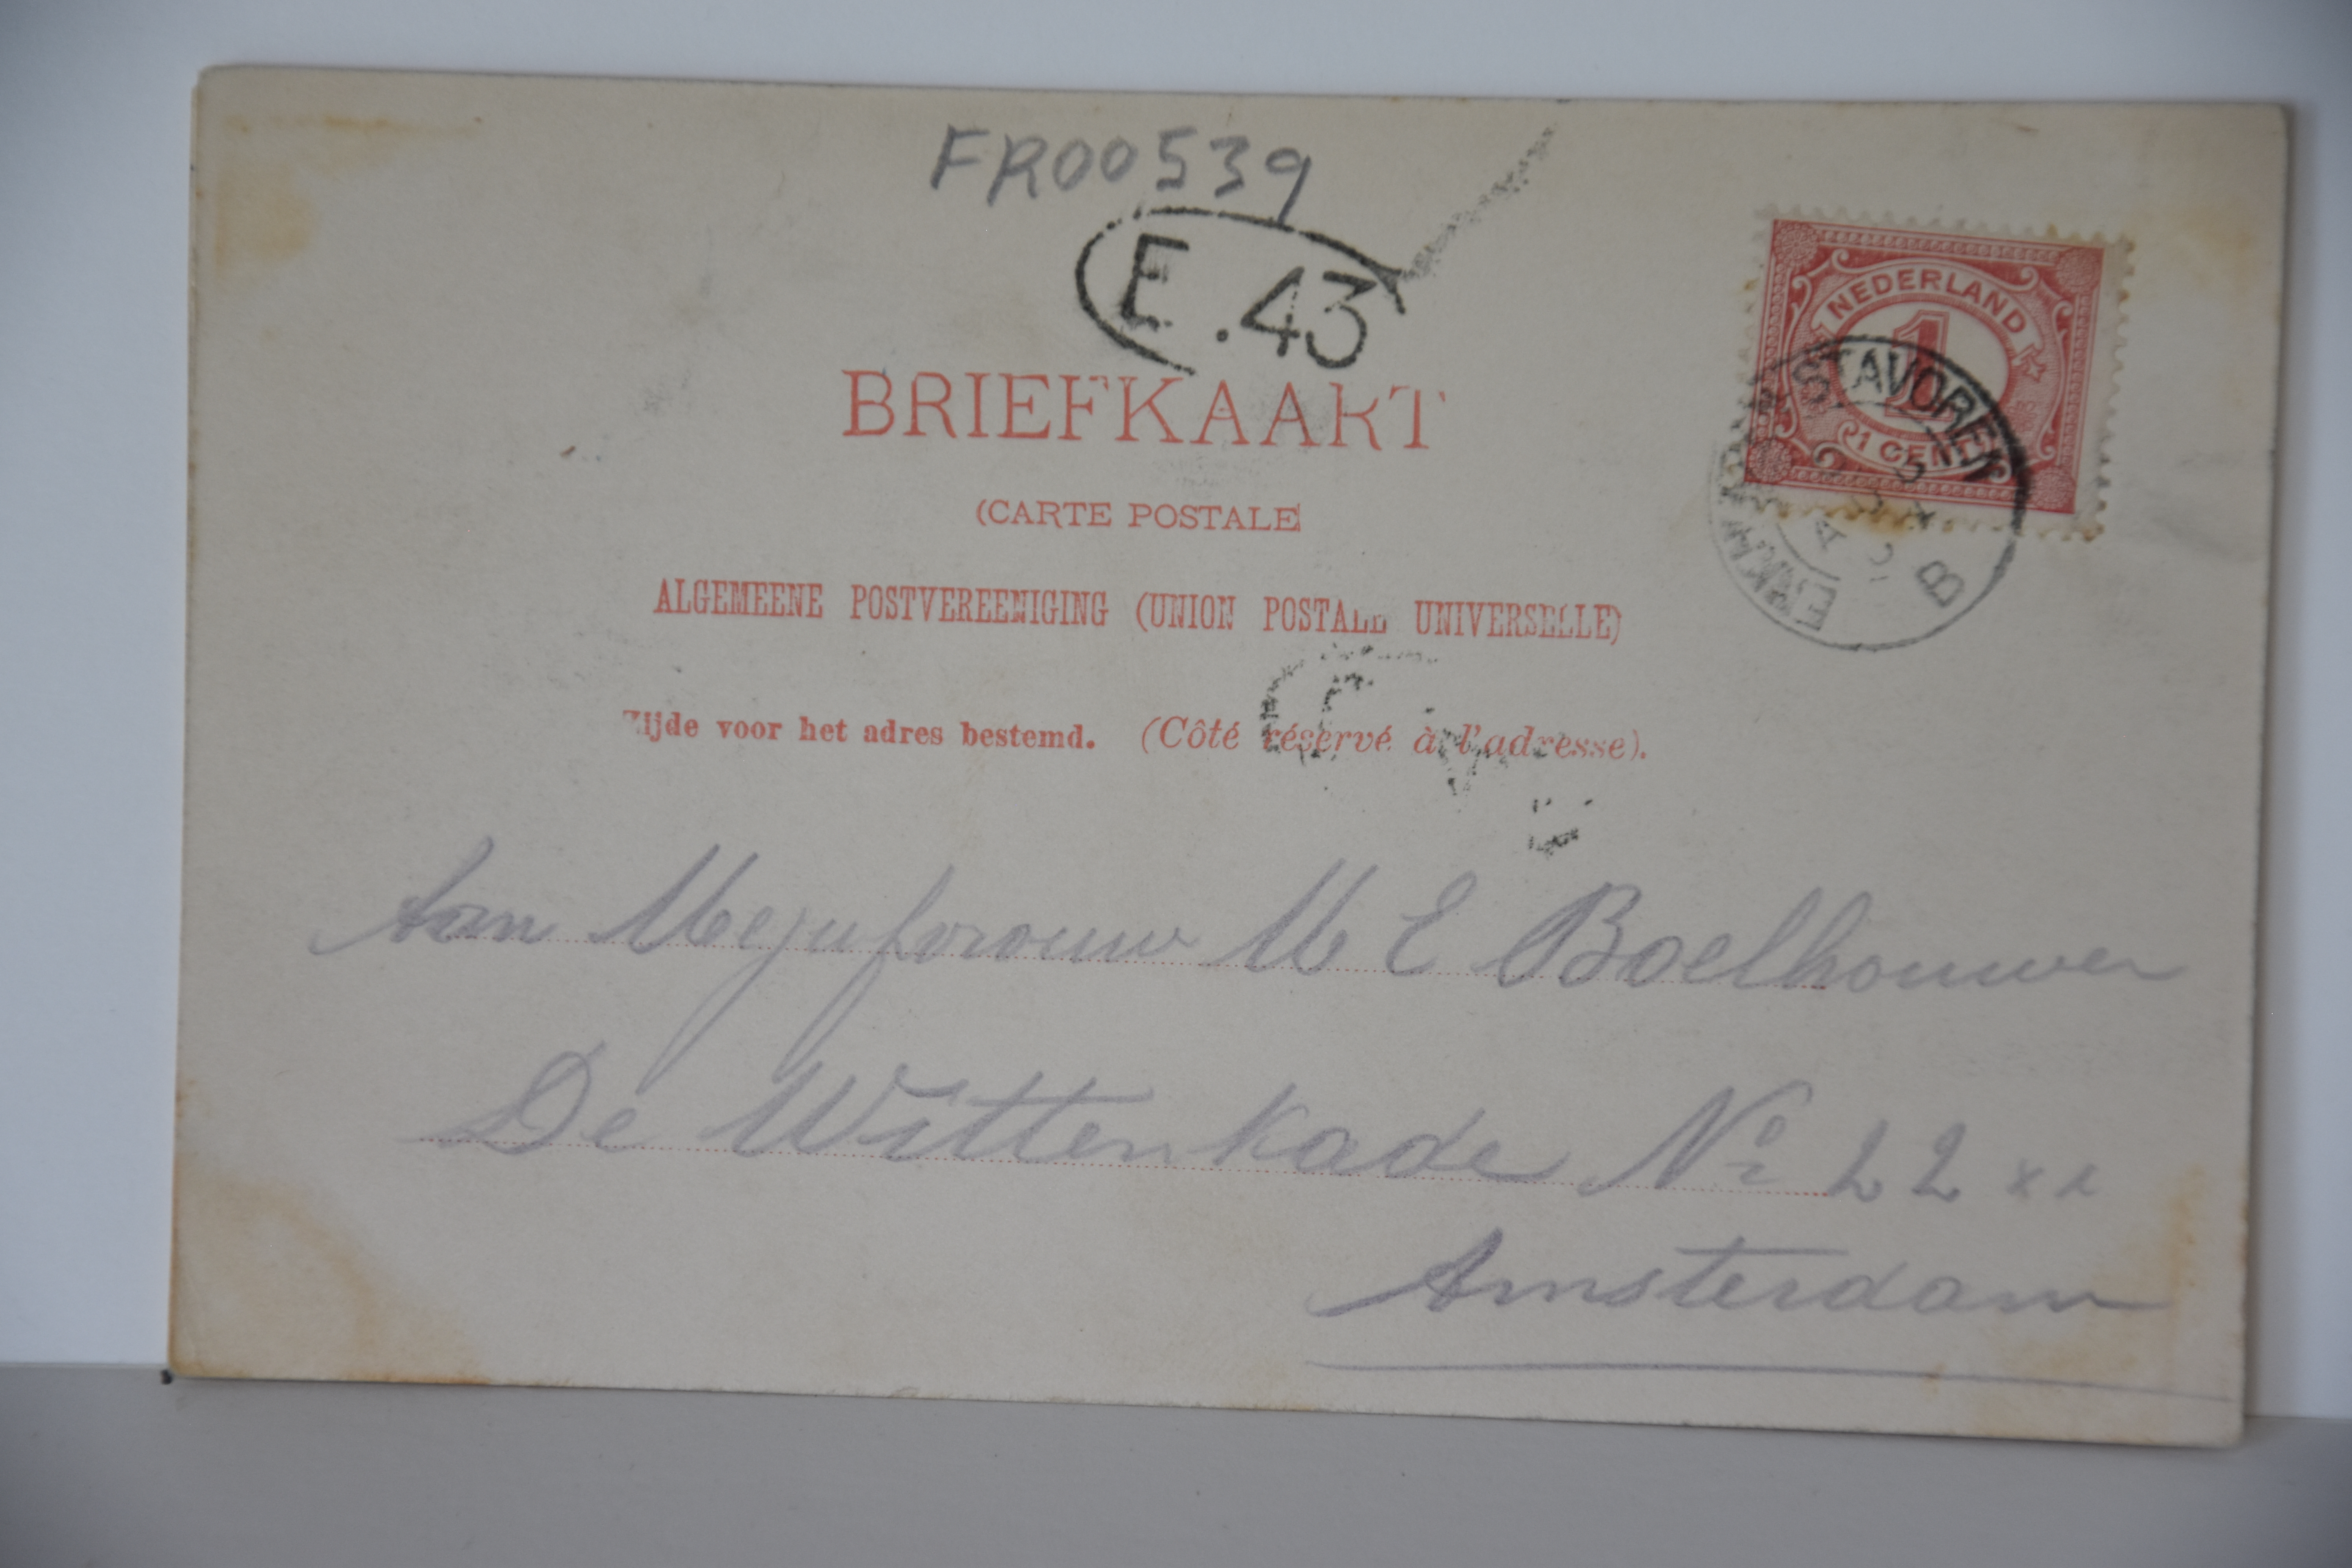 FR00539
E.43
NEDERLAND
1
1 CENT
STAVOREN
B
BRIEFKAART
(CARTE POSTALE
ALGEMEENE POSTVEREENIGING (UNION POSTALE UNIVERSELLE)
Zijde voor het adres bestemd. (Côté réservé à l'adresse).
Aan Mejufvrouw M E Boelhouwer
De Wittenkade No 22
Amsterdam